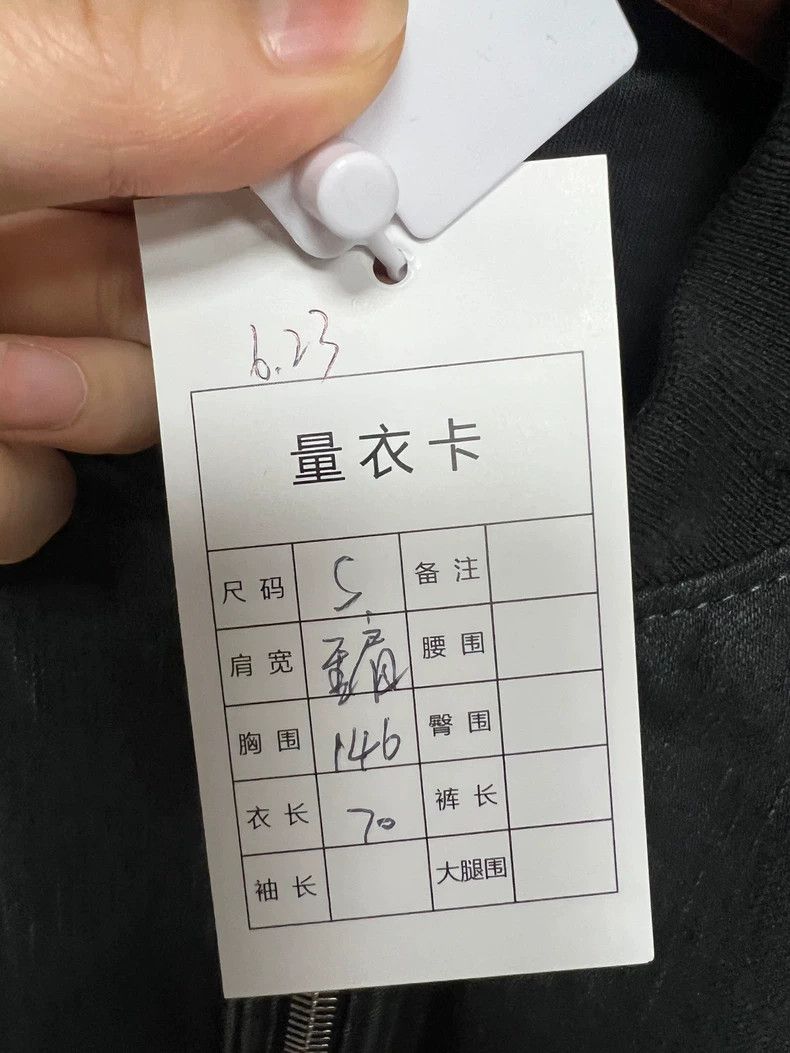 6.23
量衣卡
尺码 S 备注
肩宽 腰围
胸围 146 臀围
衣长 70 裤长
袖长 大腿围